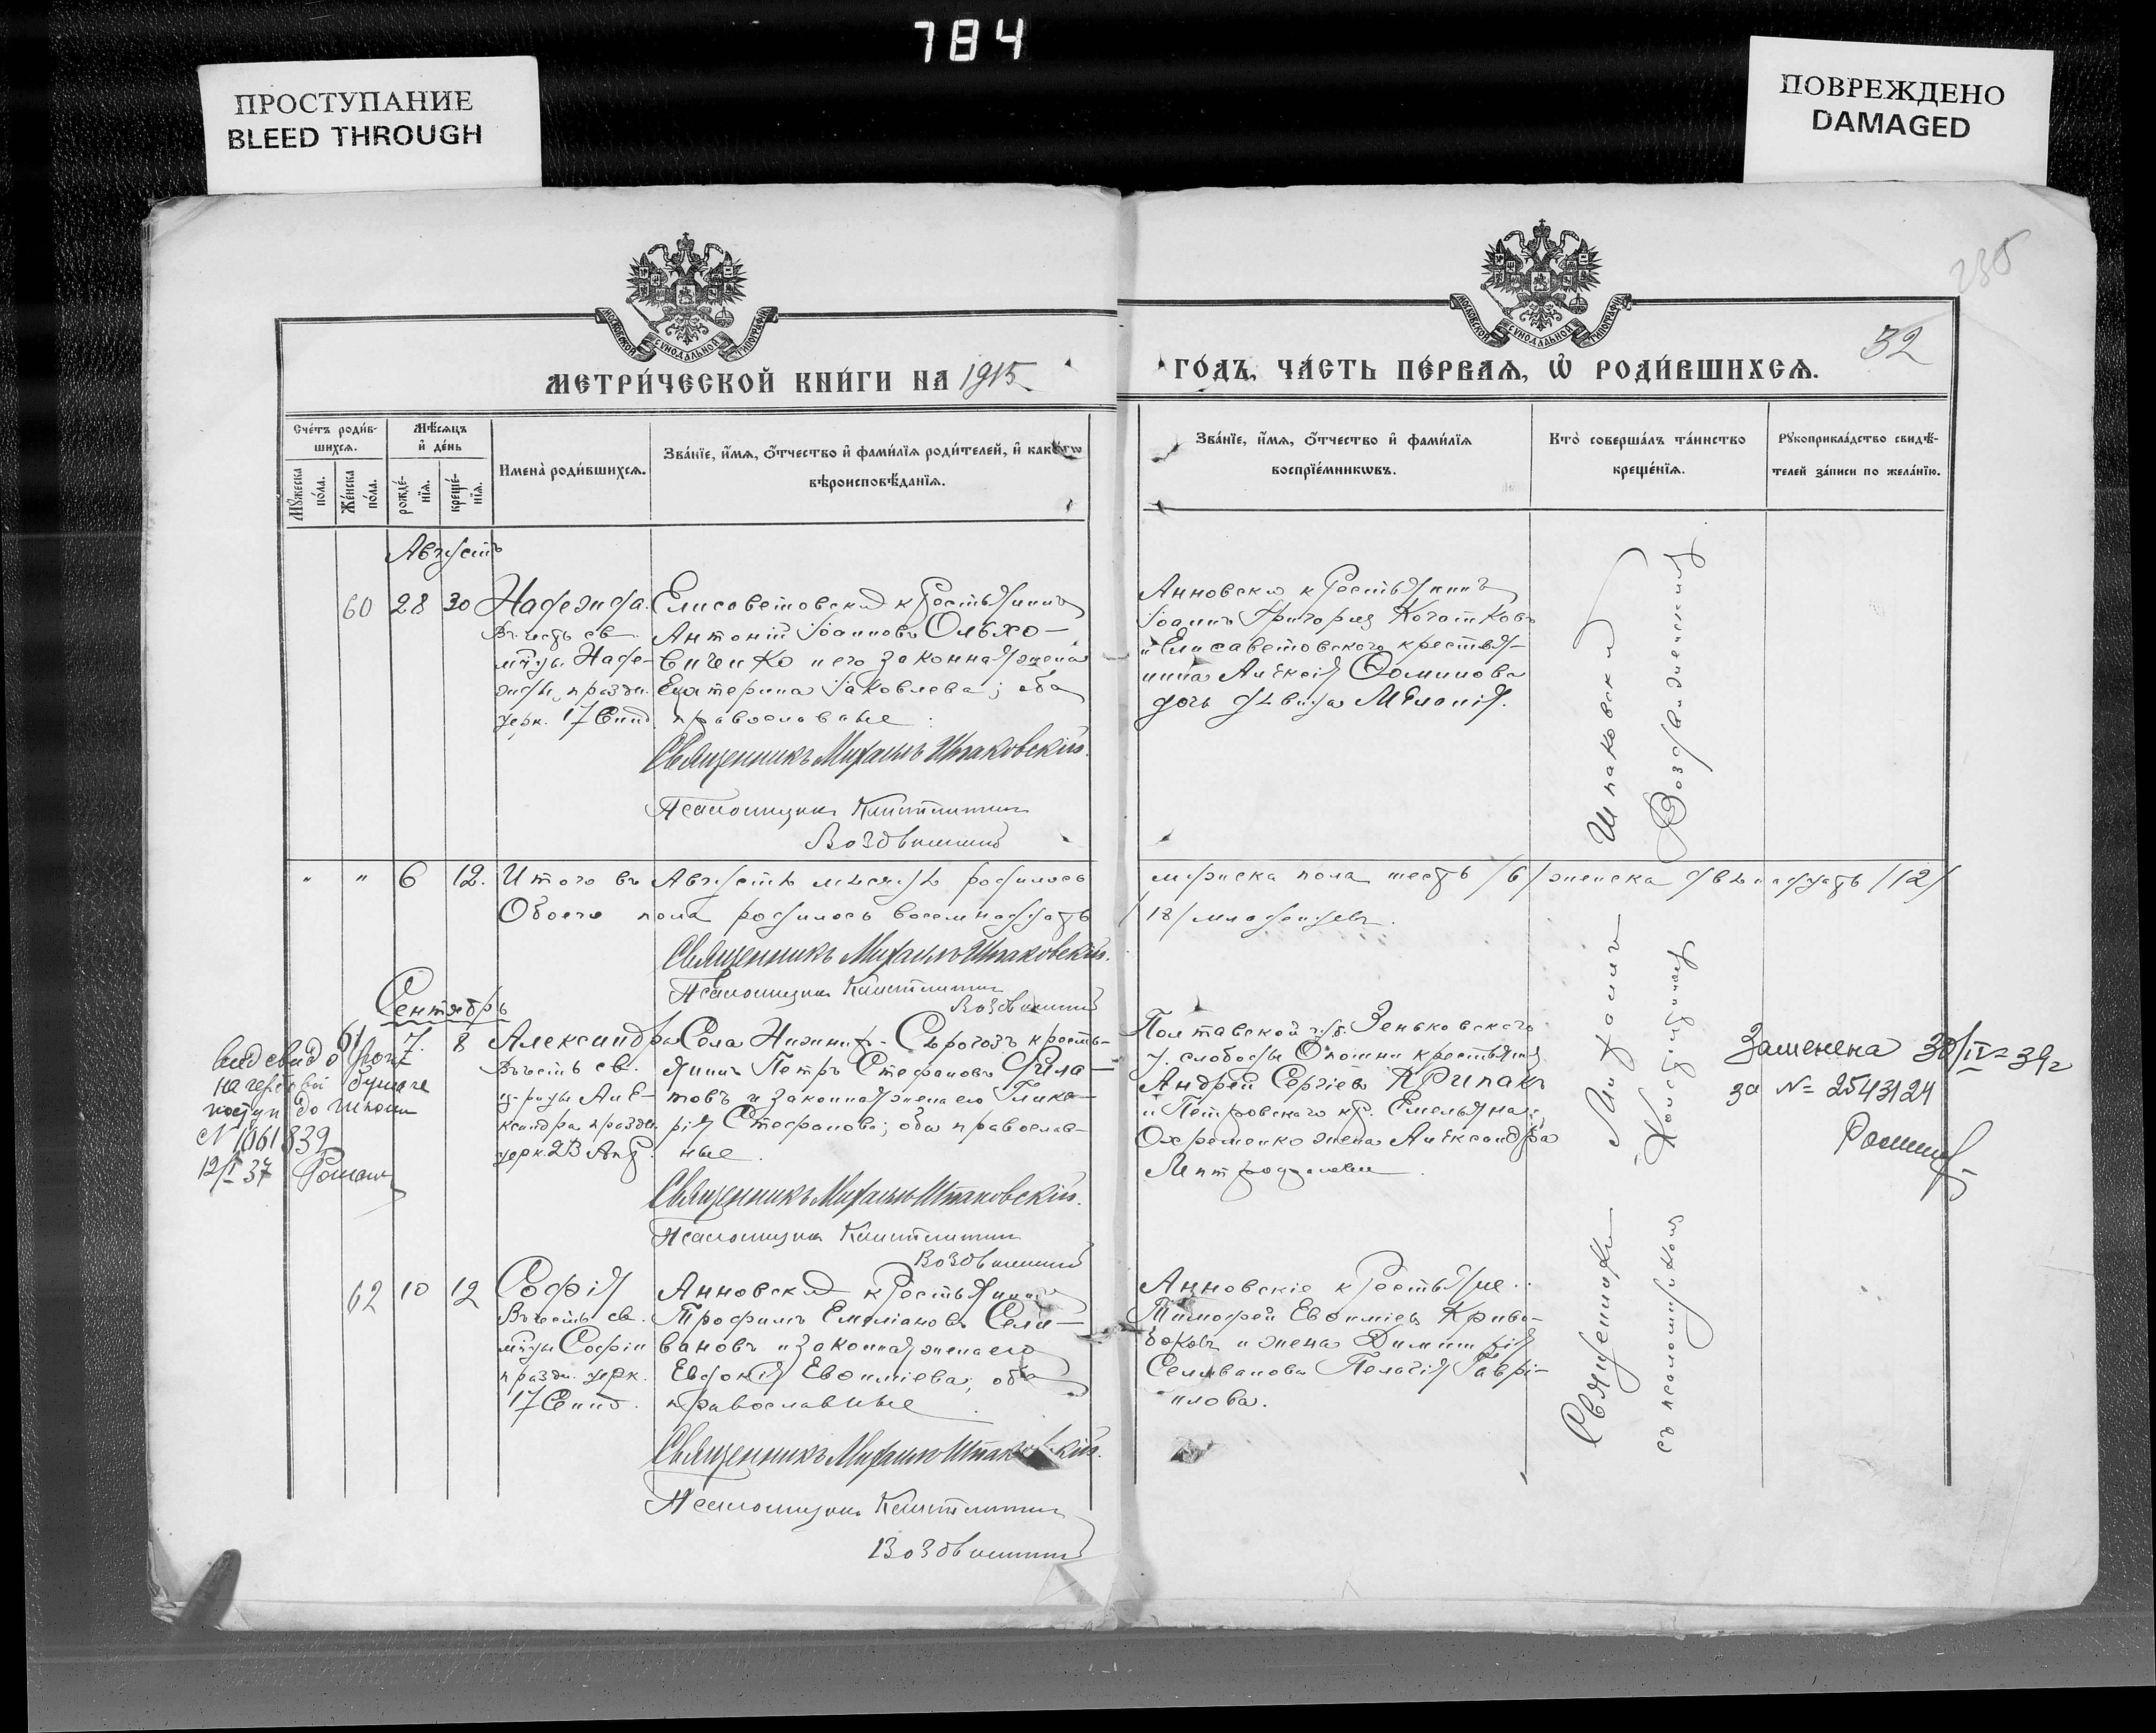 784
ПРОСТУПАНИЕ
BLEED THROUGH
ПОВРЕЖДЕНО
DAMAGED
235
32
МОСКОВСКОЙ СѴНОДАЛЬНОЙ ТИПОГРАФІИ
МОСКОВСКОЙ СѴНОДАЛЬНОЙ ТИПОГРАФІИ
МЕТРИ́ЧЕСКОЙ КНИ́ГИ НА 1915
ГО́ДЪ, ЧА́СТЬ ПЕ́РВАѦ, Ѡ҆ РОДИ́ВШИХСѦ.
Сче́тъ роди́вшихсѧ.
Мꙋ́жеска по́ла.
Же́нска по́ла.
Мѣ́сѧцъ и҆ де́нь
рожде́нїѧ.
креще́нїѧ.
Имена̀ роди́вшихсѧ.
Зва́нїе, и҆́мѧ, ѻ҆́тчество и҆ фами́лїѧ роди́телей, и҆ како́гѡ
вѣроисповѣ́данїѧ.
Зва́нїе, и҆́мѧ, ѻ҆́тчество и҆ фами́лїѧ
воспрїе́мникѡвъ.
Кто̀ соверша́лъ та́инство
креще́нїѧ.
Рꙋкоприкла́дство свидѣ́-
телей за́писи по жела́нїю.
Августъ
60 28 30 Надежда.
Въ честь св.
мч̃цы Наде-
жды, праздн.
церк. 17 Сент.
Елисаветовский крестьянинъ
Антоній Іоанновъ Ольхо-
виченко и его законная жена
Екатерина Іаковлева; оба
православные.
Священникъ Михаилъ Шпаковскій.
Псаломщикъ Константинъ
Воздвиженский
Анновский крестьянинъ
Іоаннъ Григорьев
и Елисаветовского крестья-
нина Алексія Фоминова
дочь дѣвица Меланія.
" " 6 12. Итого въ Августѣ мѣсяцѣ родилось мужеска пола шесть /6/ женска двѣнадцать /12/
Обоего пола родилось восемнадцать /18/ младенцевъ.
Священникъ Михаилъ Шпаковскій.
Псаломщикъ Константинъ
Воздвиженский
Сентябрь
61 7. 8 Александра
Въ честь св.
м-цы Але-
ксандры праздн.
церк. 23 Апр.
Села Нижнихъ-Сѣрогозъ кресть-
янинъ Петръ Стефановъ Фила-
товъ и законная жена его Глике-
рія Стефанова; оба православ-
ные.
Священникъ Михаилъ Шпаковскій.
Псаломщикъ Константинъ
Воздвиженский
Полтавской губ. Зеньковского
у. слободы Опошни крестьянин
Андрей Сергіевъ
и Петровского кр. Емельяна
Охременко жена Александра
Митрофанова
выд свид о рожд
на гербовой бумаге
поступ до школы
N 1061839
12/I 37
Заменена 30/IV-39г
за N= 2543124
62 10 12 Софія
Въ честь св.
мч̃цы Софіи
праздн. церк.
17 Сент.
Анновский крестьянинъ
Трофимъ Емеліановъ Сели-
вановъ и законная жена его
Евдокія Евѳиміева; оба
православные.
Священникъ Михаилъ Шпаковскій.
Псаломщикъ Константинъ
Воздвиженский
Анновскіе крестьяне:
Тимофей Евѳиміевъ Криво-
боковъ и жена Димитрія
Селиванова Пелагія Гаврі-
илова.
Священникъ Михаилъ Шпаковский
съ псаломщикомъ Константиномъ Воздвиженский